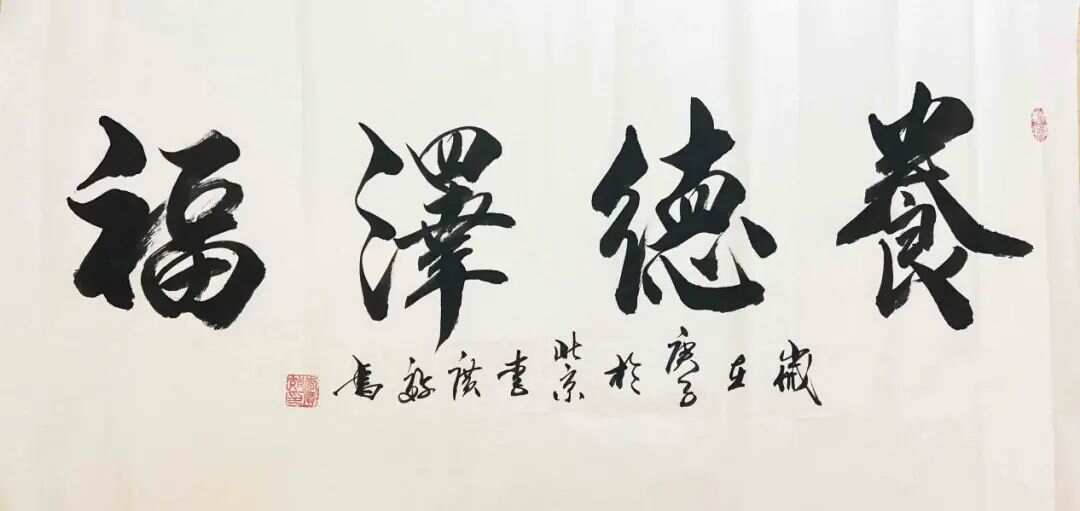 養德澤福
歲在庚子於北京李廣毅書